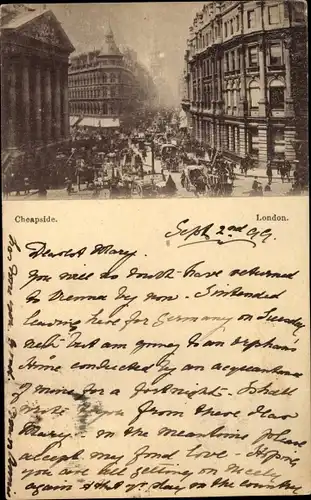 Cheapside.
London.
Sept 2nd 99.
Dearest Mary.
You will no doubt have returned
to Vienna by now. I intended
leaving here for Germany on Tuesday
next but am going to an orphans
home conducted by an acquaintance
of mine for a fortnight. I shall
write to you from there dear
Mary. in the meantime please
accept my fond love. Hoping
you are all getting on nicely
again & that yr stay in the country